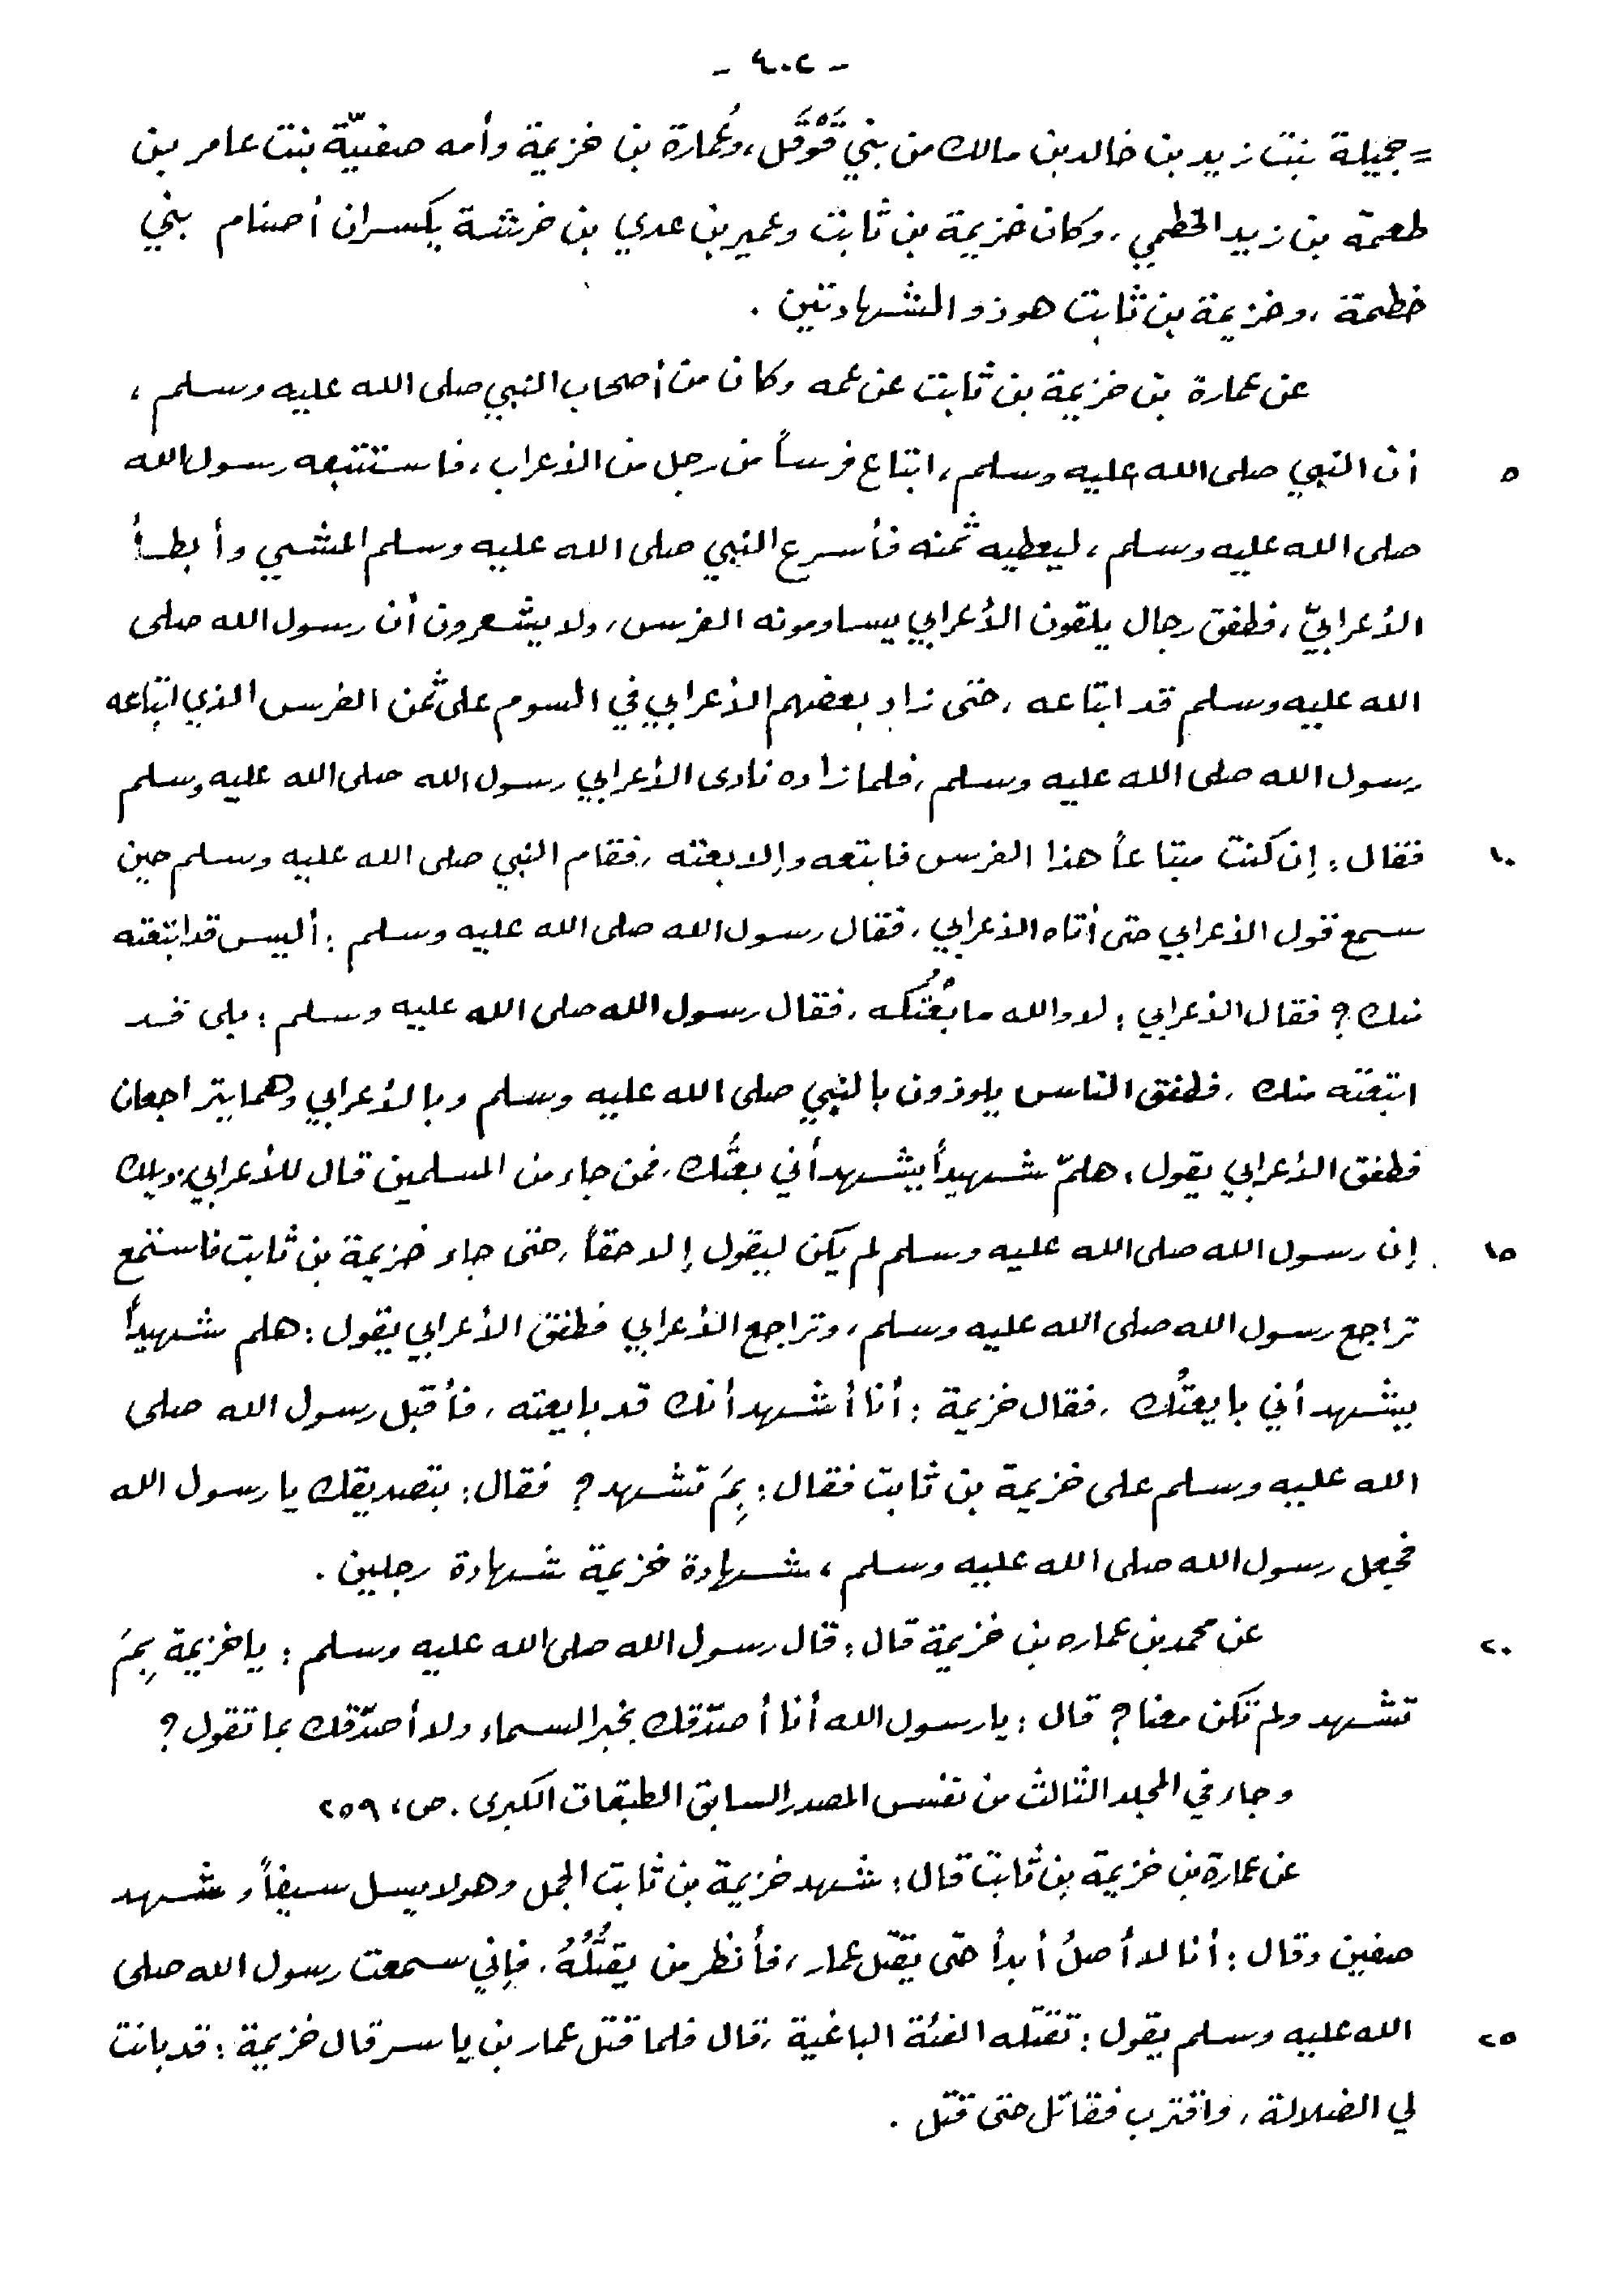 - ٤٠٢ -
= جميلة بنت زيد بن خالد بن مالك من بني قَوْقَل، وعُمارة بن خزيمة وأمه صفيّة بنت عامر بن
طعمة بن زيد الخطمي، وكان خزيمة بن ثابت وعمير بن عدي بن خرشة يكسران أصنام بني
خطمة، وخزيمة بن ثابت هو ذو الشهادتين .
عن عمارة بن خزيمة بن ثابت عن عمه وكان من أصحاب النبي صلى الله عليه وسلم،
٥ أن النبي صلى الله عليه وسلم، ابتاع فرساً من رجل من الأعراب، فاستتبعه رسول الله
صلى الله عليه وسلم، ليعطيه ثمنه فأسرع النبي صلى الله عليه وسلم المشي وأبطأ
الأعرابيّ، فطفق رجال يلقون الأعرابي يساومونه الفرس، ولا يشعرون أن رسول الله صلى
الله عليه وسلم قد ابتاعه، حتى زاد بعضهم الأعرابي في السوم على ثمن الفرس الذي ابتاعه
رسول الله صلى الله عليه وسلم، فلما زاده نادى الأعرابي رسول الله صلى الله عليه وسلم
١٠ فقال: إن كنت مبتاعاً هذا الفرس فابتعه وإلا بعته، فقام النبي صلى الله عليه وسلم حين
سمع قول الأعرابي حتى أتاه الأعرابي، فقال رسول الله صلى الله عليه وسلم: أليس قد ابتعته
منك؟ فقال الأعرابي: لا والله ما بعْتُكه، فقال رسول الله صلى الله عليه وسلم: بلى قد
ابتعته منك، فطفق الناس يلوذون بالنبي صلى الله عليه وسلم وبالأعرابي وهما يتراجعان
فطفق الأعرابي يقول: هلمّ شهيداً يشهد أني بعتُك، فمن جاء من المسلمين قال للأعرابي: ويلك
١٥ إن رسول الله صلى الله عليه وسلم لم يكن ليقول إلا حقاً، حتى جاء خزيمة بن ثابت فاستمع
تراجع رسول الله صلى الله عليه وسلم، وتراجع الأعرابي فطفق الأعرابي يقول: هلم شهيداً
يشهد أني بايعتُك، فقال خزيمة: أنا أشهد أنك قد بايعته، فأقبل رسول الله صلى
الله عليه وسلم على خزيمة بن ثابت فقال: بِمَ تشهد؟ فقال: بتصديقك يا رسول الله
فجعل رسول الله صلى الله عليه وسلم، شهادة خزيمة شهادة رجلين .
٢٠ عن محمد بن عماره بن خزيمة قال: قال رسول الله صلى الله عليه وسلم: يا خزيمة بِمَ
تشهد ولم تكن معنا؟ قال: يا رسول الله أنا أصدّقك بخبر السماء ولا أصدّقك بما تقول؟
وجاء في المجلد الثالث من نفس المصدر السابق الطبقات الكبرى . ص، ٢٥٩
عن عمارة بن خزيمة بن ثابت قال: شهد خزيمة بن ثابت الجمل وهو لا يسل سيفاً، وشهد
صفين وقال: أنا لا أصلُ أبداً حتى يقتل عمار، فأنظر من يقتُلُهُ، فإني سمعت رسول الله صلى
٢٥ الله عليه وسلم يقول: تقتله الفئة الباغية، قال فلما قتل عمار بن ياسر قال خزيمة: قد بانت
لي الضلالة، واقترب فقاتل حتى قتل .